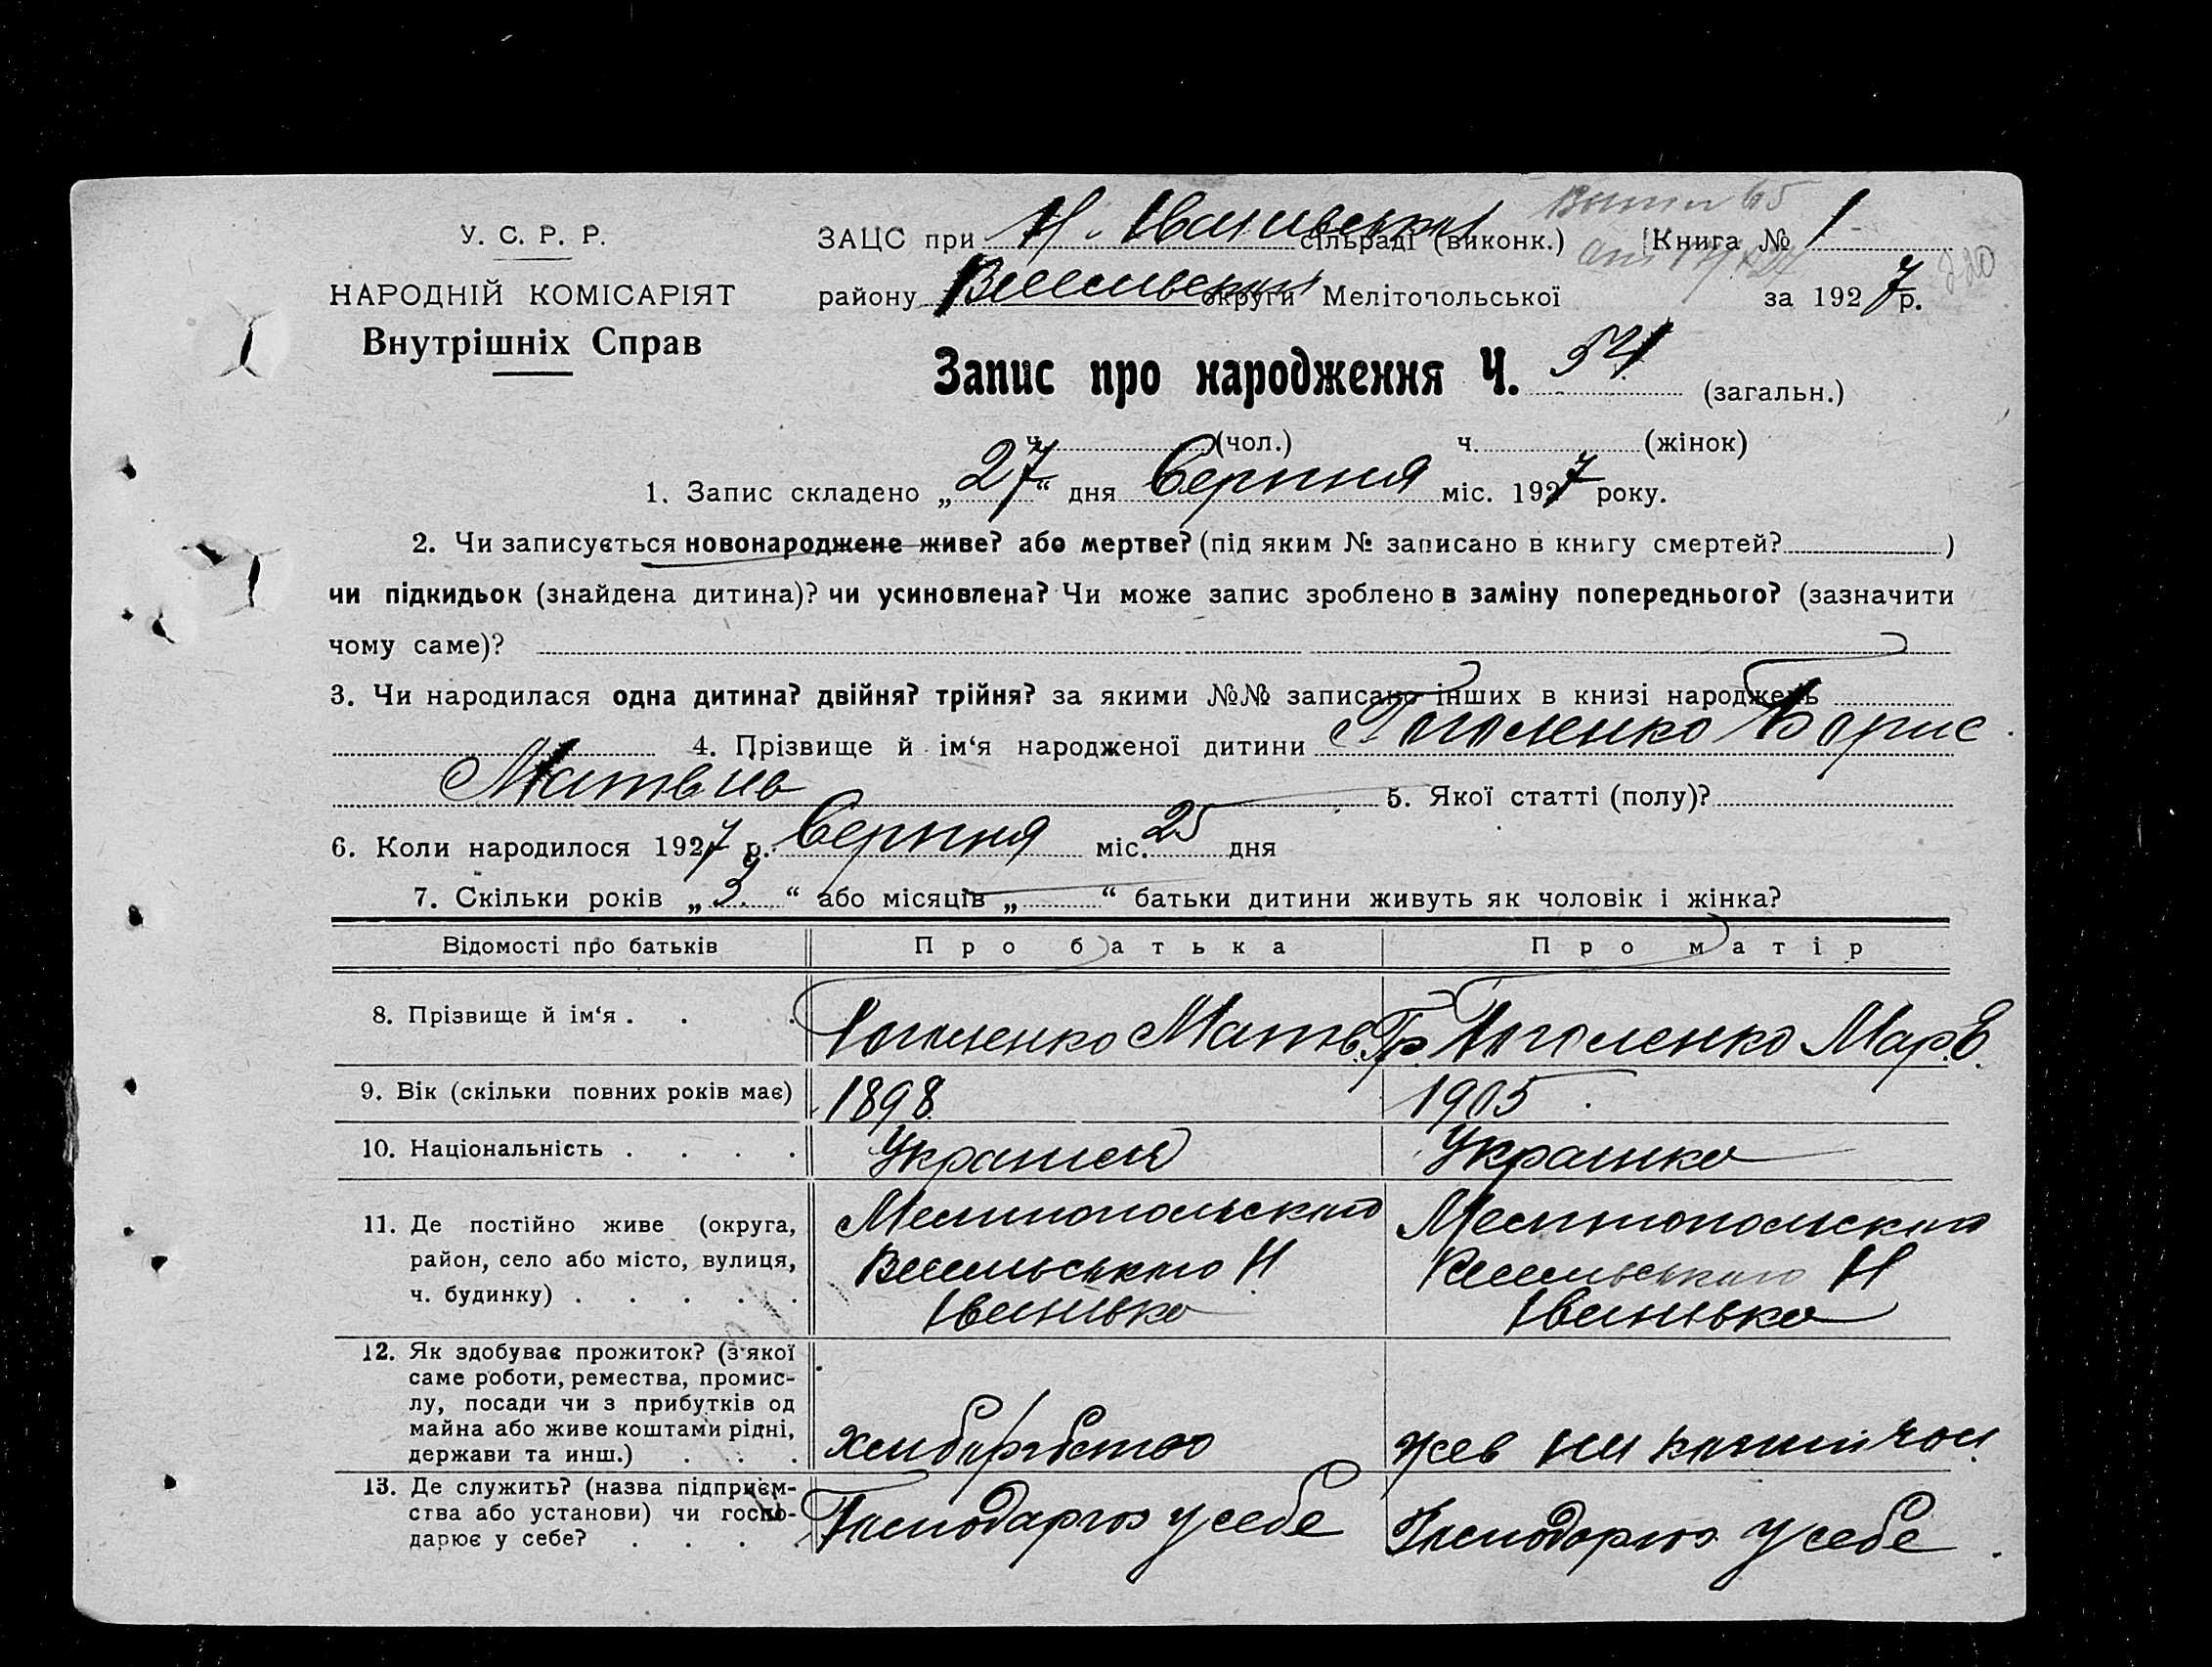 У. С. Р. Р.
НАРОДНІЙ КОМІСАРІЯТ
Внутрішніх Справ
ЗАЦС при Н. Іванівській сільраді (виконк.) Книга № 1
району Веселівський округи Мелітопольської за 1927 р.
Запис про народження Ч. 54 (загальн.)
ч. (чол.) ч. (жінок)
1. Запис складено „27“ дня Серпня міс. 1927 року.
2. Чи записується новонароджене живе? або мертве? (під яким № записано в книгу смертей? )
чи підкидьок (знайдена дитина)? чи усиновлена? Чи може запис зроблено в заміну попереднього? (зазначити
чому саме)?
3. Чи народилася одна дитина? двійня? трійня? за якими №№ записано інших в книзі народжень
4. Прізвище й ім‘я народженої дитини Гоголенко Борис
Матвив 5. Якої статті (полу)?
6. Коли народилося 1927 р. Серпня міс. 25 дня
7. Скільки років „3“ або місяців „ “ батьки дитини живуть як чоловік і жінка?
Відомості про батьків Про батька Про матір
8. Прізвище й ім‘я . . . Гоголенко Матв. Гр. Гоголенко Мар. Є.
9. Вік (скільки повних років має) 1898 1905
10. Національність . . . . Украинец Украинка
11. Де постійно живе (округа,
район, село або місто, вулиця,
ч. будинку) . . . . .
Мелитопольского
Веселівського Н
Іванівка
Мелитопольского
Веселівського Н
Іванівка
12. Як здобуває прожиток? (з‘якої
саме роботи, ремества, промис-
лу, посади чи з прибутків од
майна або живе коштами рідні,
держави та инш.) . . .
хлібарбство
жев на
13. Де служить? (назва підприєм-
ства або установи) чи госпо-
дарює у себе? . . . .
Господарює у себе
Господорює у себе